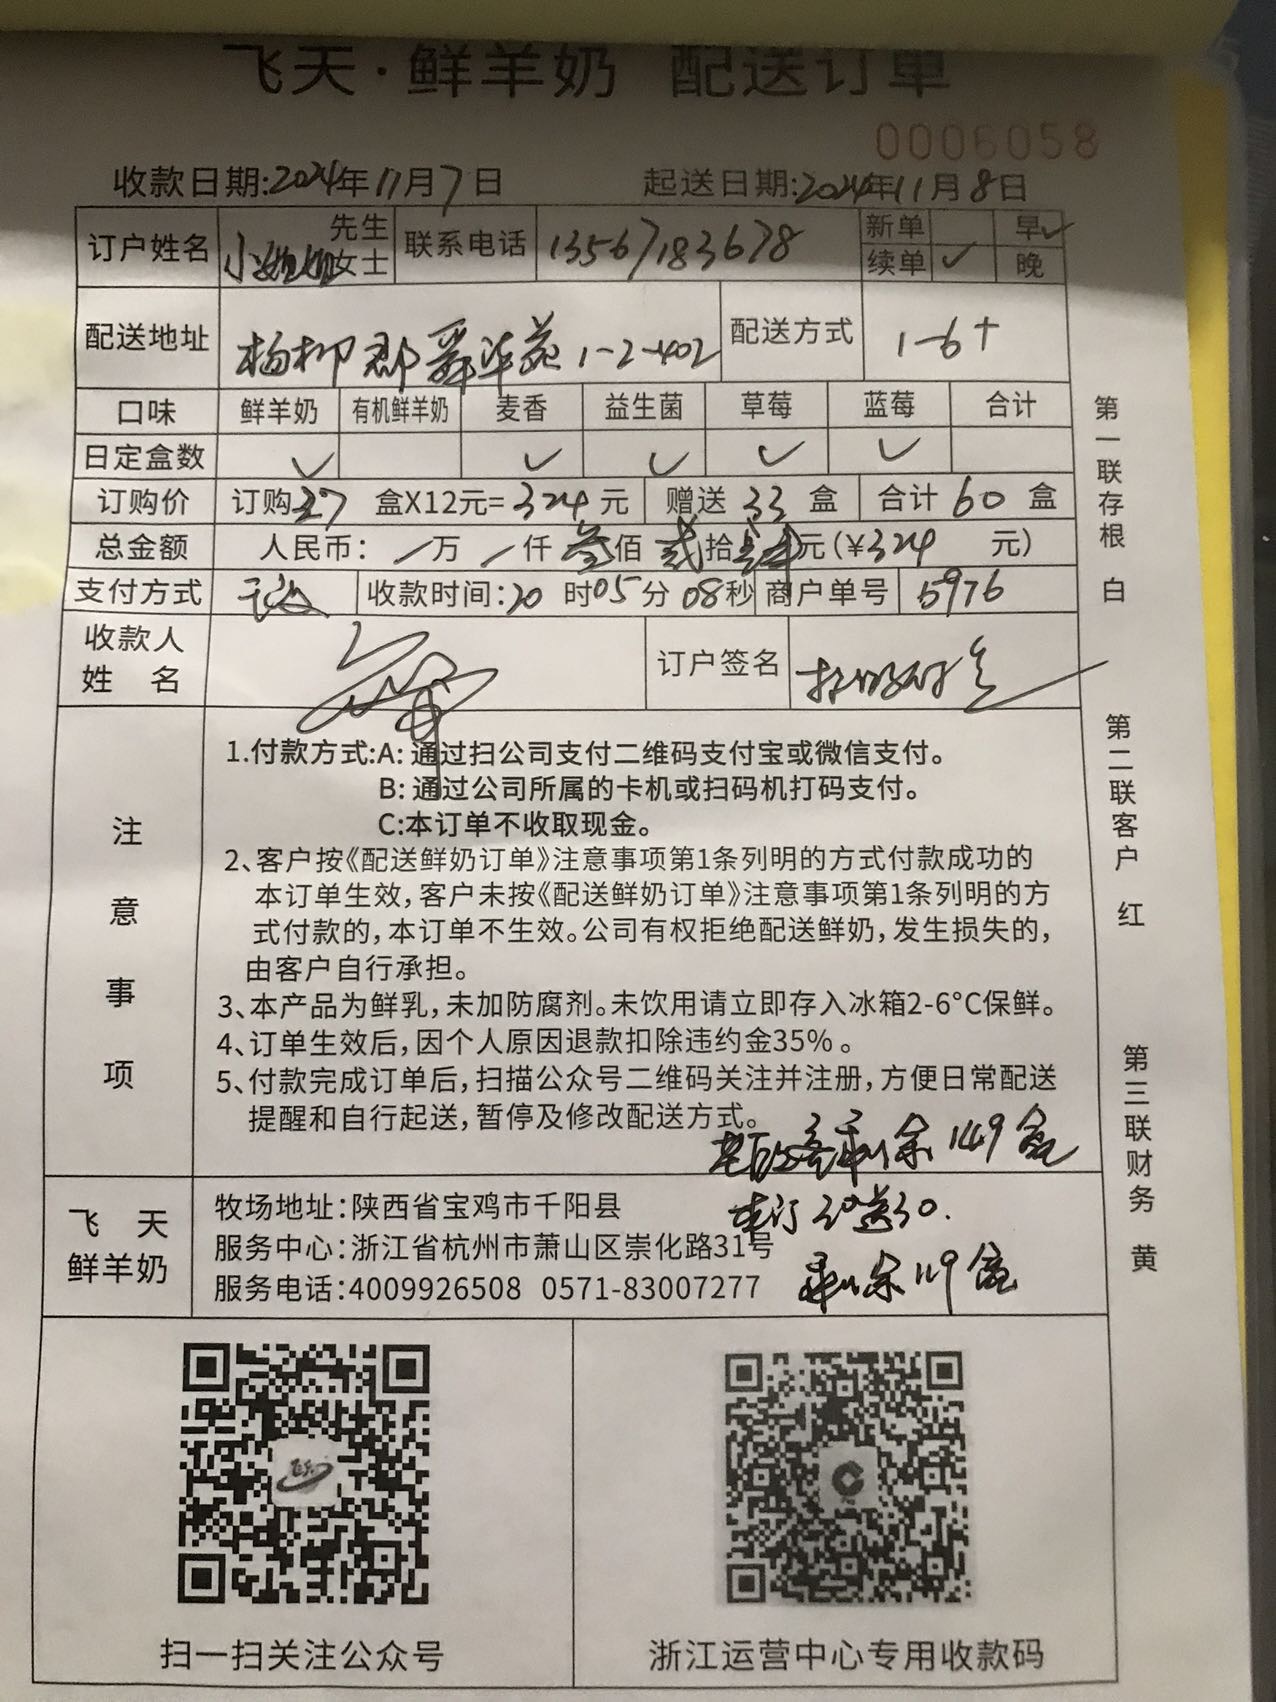 飞天·鲜羊奶 配送订单
0006058
收款日期:2024年11月7日 起送日期:2024年11月8日
订户姓名 小姐姐 先生 女士 联系电话 13567183678 新单 早✓
续单 ✓ 晚
配送地址 杨柳郡舜华苑1-2-402 配送方式 1-6+
口味 鲜羊奶 有机鲜羊奶 麦香 益生菌 草莓 蓝莓 合计
日定盒数 ✓ ✓ ✓ ✓ ✓
订购价 订购27盒X12元=324元 赠送33盒 合计60盒
总金额 人民币: /万/仟叁佰贰拾肆元(¥324元)
支付方式 收款时间:20时05分08秒 商户单号 5976
收款人
姓 名 订户签名
注意事项
1.付款方式:A: 通过扫公司支付二维码支付宝或微信支付。
B: 通过公司所属的卡机或扫码机打码支付。
C:本订单不收取现金。
2、客户按《配送鲜奶订单》注意事项第1条列明的方式付款成功的
本订单生效,客户未按《配送鲜奶订单》注意事项第1条列明的方
式付款的,本订单不生效。公司有权拒绝配送鲜奶,发生损失的,
由客户自行承担。
3、本产品为鲜乳,未加防腐剂。未饮用请立即存入冰箱2-6°C保鲜。
4、订单生效后,因个人原因退款扣除违约金35%。
5、付款完成订单后,扫描公众号二维码关注并注册,方便日常配送
提醒和自行起送,暂停及修改配送方式。
剩余149盒
飞 天
鲜羊奶
牧场地址:陕西省宝鸡市千阳县
本订30送30.
服务中心:浙江省杭州市萧山区崇化路31号
服务电话:4009926508 0571-83007277
剩余119盒
扫一扫关注公众号 浙江运营中心专用收款码
第一联存根 白
第二联客户 红
第三联财务 黄